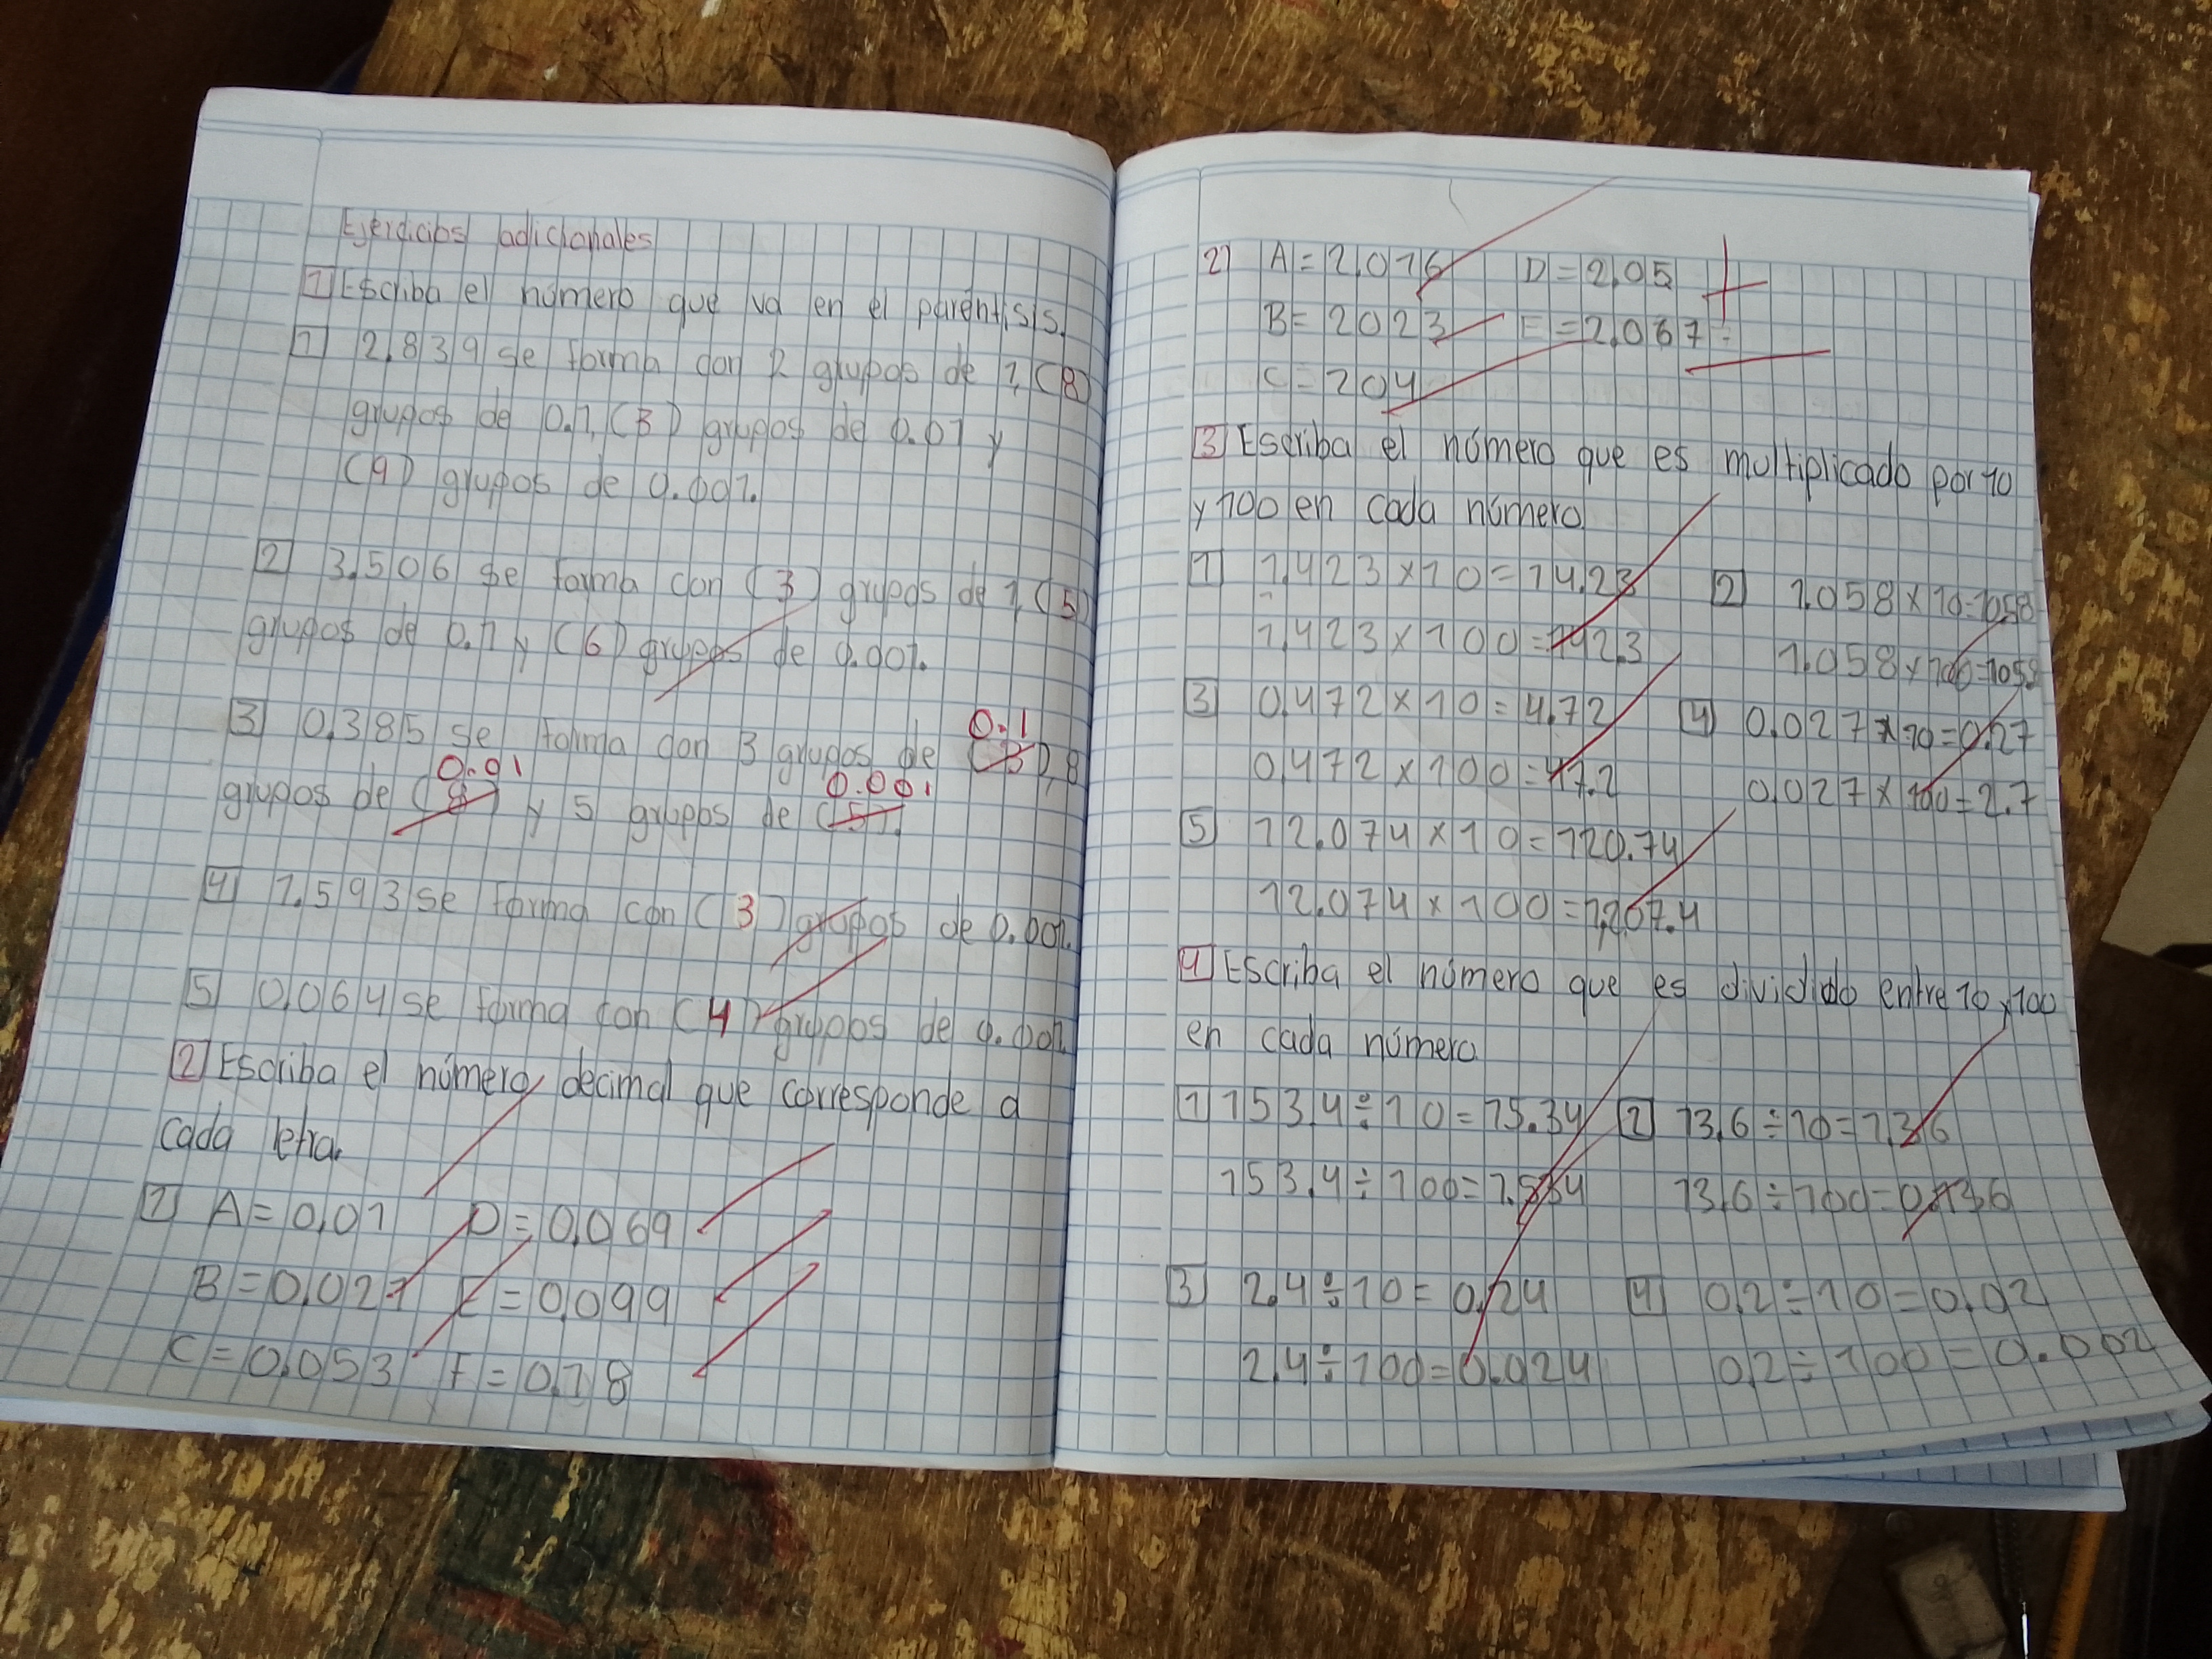 Ejercicios adicionales
1 Escriba el número que va en el paréntisis.
1 2.839 se forma con 2 grupos de 1, (8)
grupos de 0.1, (3) grupos de 0.01 y
(9) grupos de 0.001.
2 3.506 se forma con (3) grupos de 1, (5)
grupos de 0.1 y (6) grupos de 0.001.
0.1
3 0.385 se forma con 3 grupos de (3), 8
0.01 0.001
grupos de (8) y 5 grupos de (5).
4 1.593 se forma con (3) grupos de 0.001.
5 0.064 se forma con (4) grupos de 0.001
2 Escriba el número decimal que corresponde a
cada letra.
1 A = 0.01 D = 0.069
B = 0.021 E = 0.099
C = 0.053 F = 0.18
2) A = 2.016 D = 2.05
B = 2023 E = 2.067
C = 204
3 Escriba el número que es multiplicado por 10
y 100 en cada número
1 1.423 x 10 = 14.23 2 1.058 x 10 = 10.58
1.423 x 100 = 142.3 1.058 x 100 = 105.8
3 0.472 x 10 = 4.72 4 0.027 x 10 = 0.27
0.472 x 100 = 47.2 0.027 x 100 = 2.7
5 12.074 x 10 = 120.74
12.074 x 100 = 1,207.4
4 Escriba el número que es dividido entre 10 y 100
en cada número
1 153.4 ÷ 10 = 15.34 2 13.6 ÷ 10 = 1.36
153.4 ÷ 100 = 1.534 13.6 ÷ 100 = 0.136
3 2.4 ÷ 10 = 0.24 4 0.2 ÷ 10 = 0.02
2.4 ÷ 100 = 0.024 0.2 ÷ 100 = 0.002